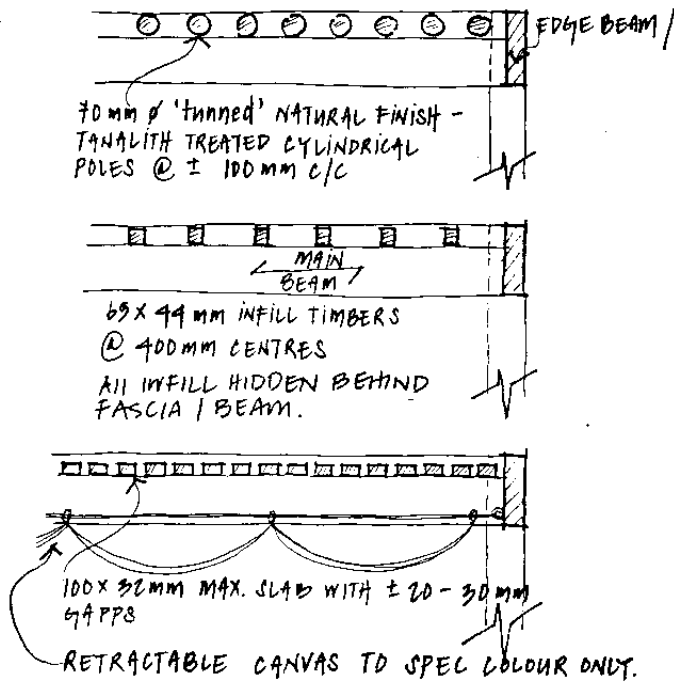 EDGE BEAM /
70mm ø 'tunned' NATURAL FINISH -
TANALITH TREATED CYLINDRICAL
POLES @ ± 100mm C/C
MAIN
BEAM
69 X 44 mm INFILL TIMBERS
@ 400mm CENTRES
All INFILL HIDDEN BEHIND
FASCIA / BEAM.
100 X 32mm MAX. SLAB WITH ± 20 - 30 mm
GAPPS
RETRACTABLE CANVAS TO SPEC COLOUR ONLY.